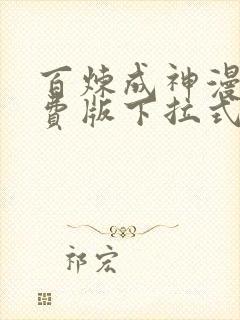 百炼成神漫
费版下拉式
祁宏